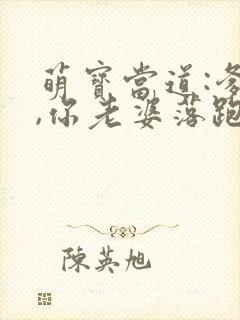 萌寶當道:爹
,你老婆落跑
陳英旭